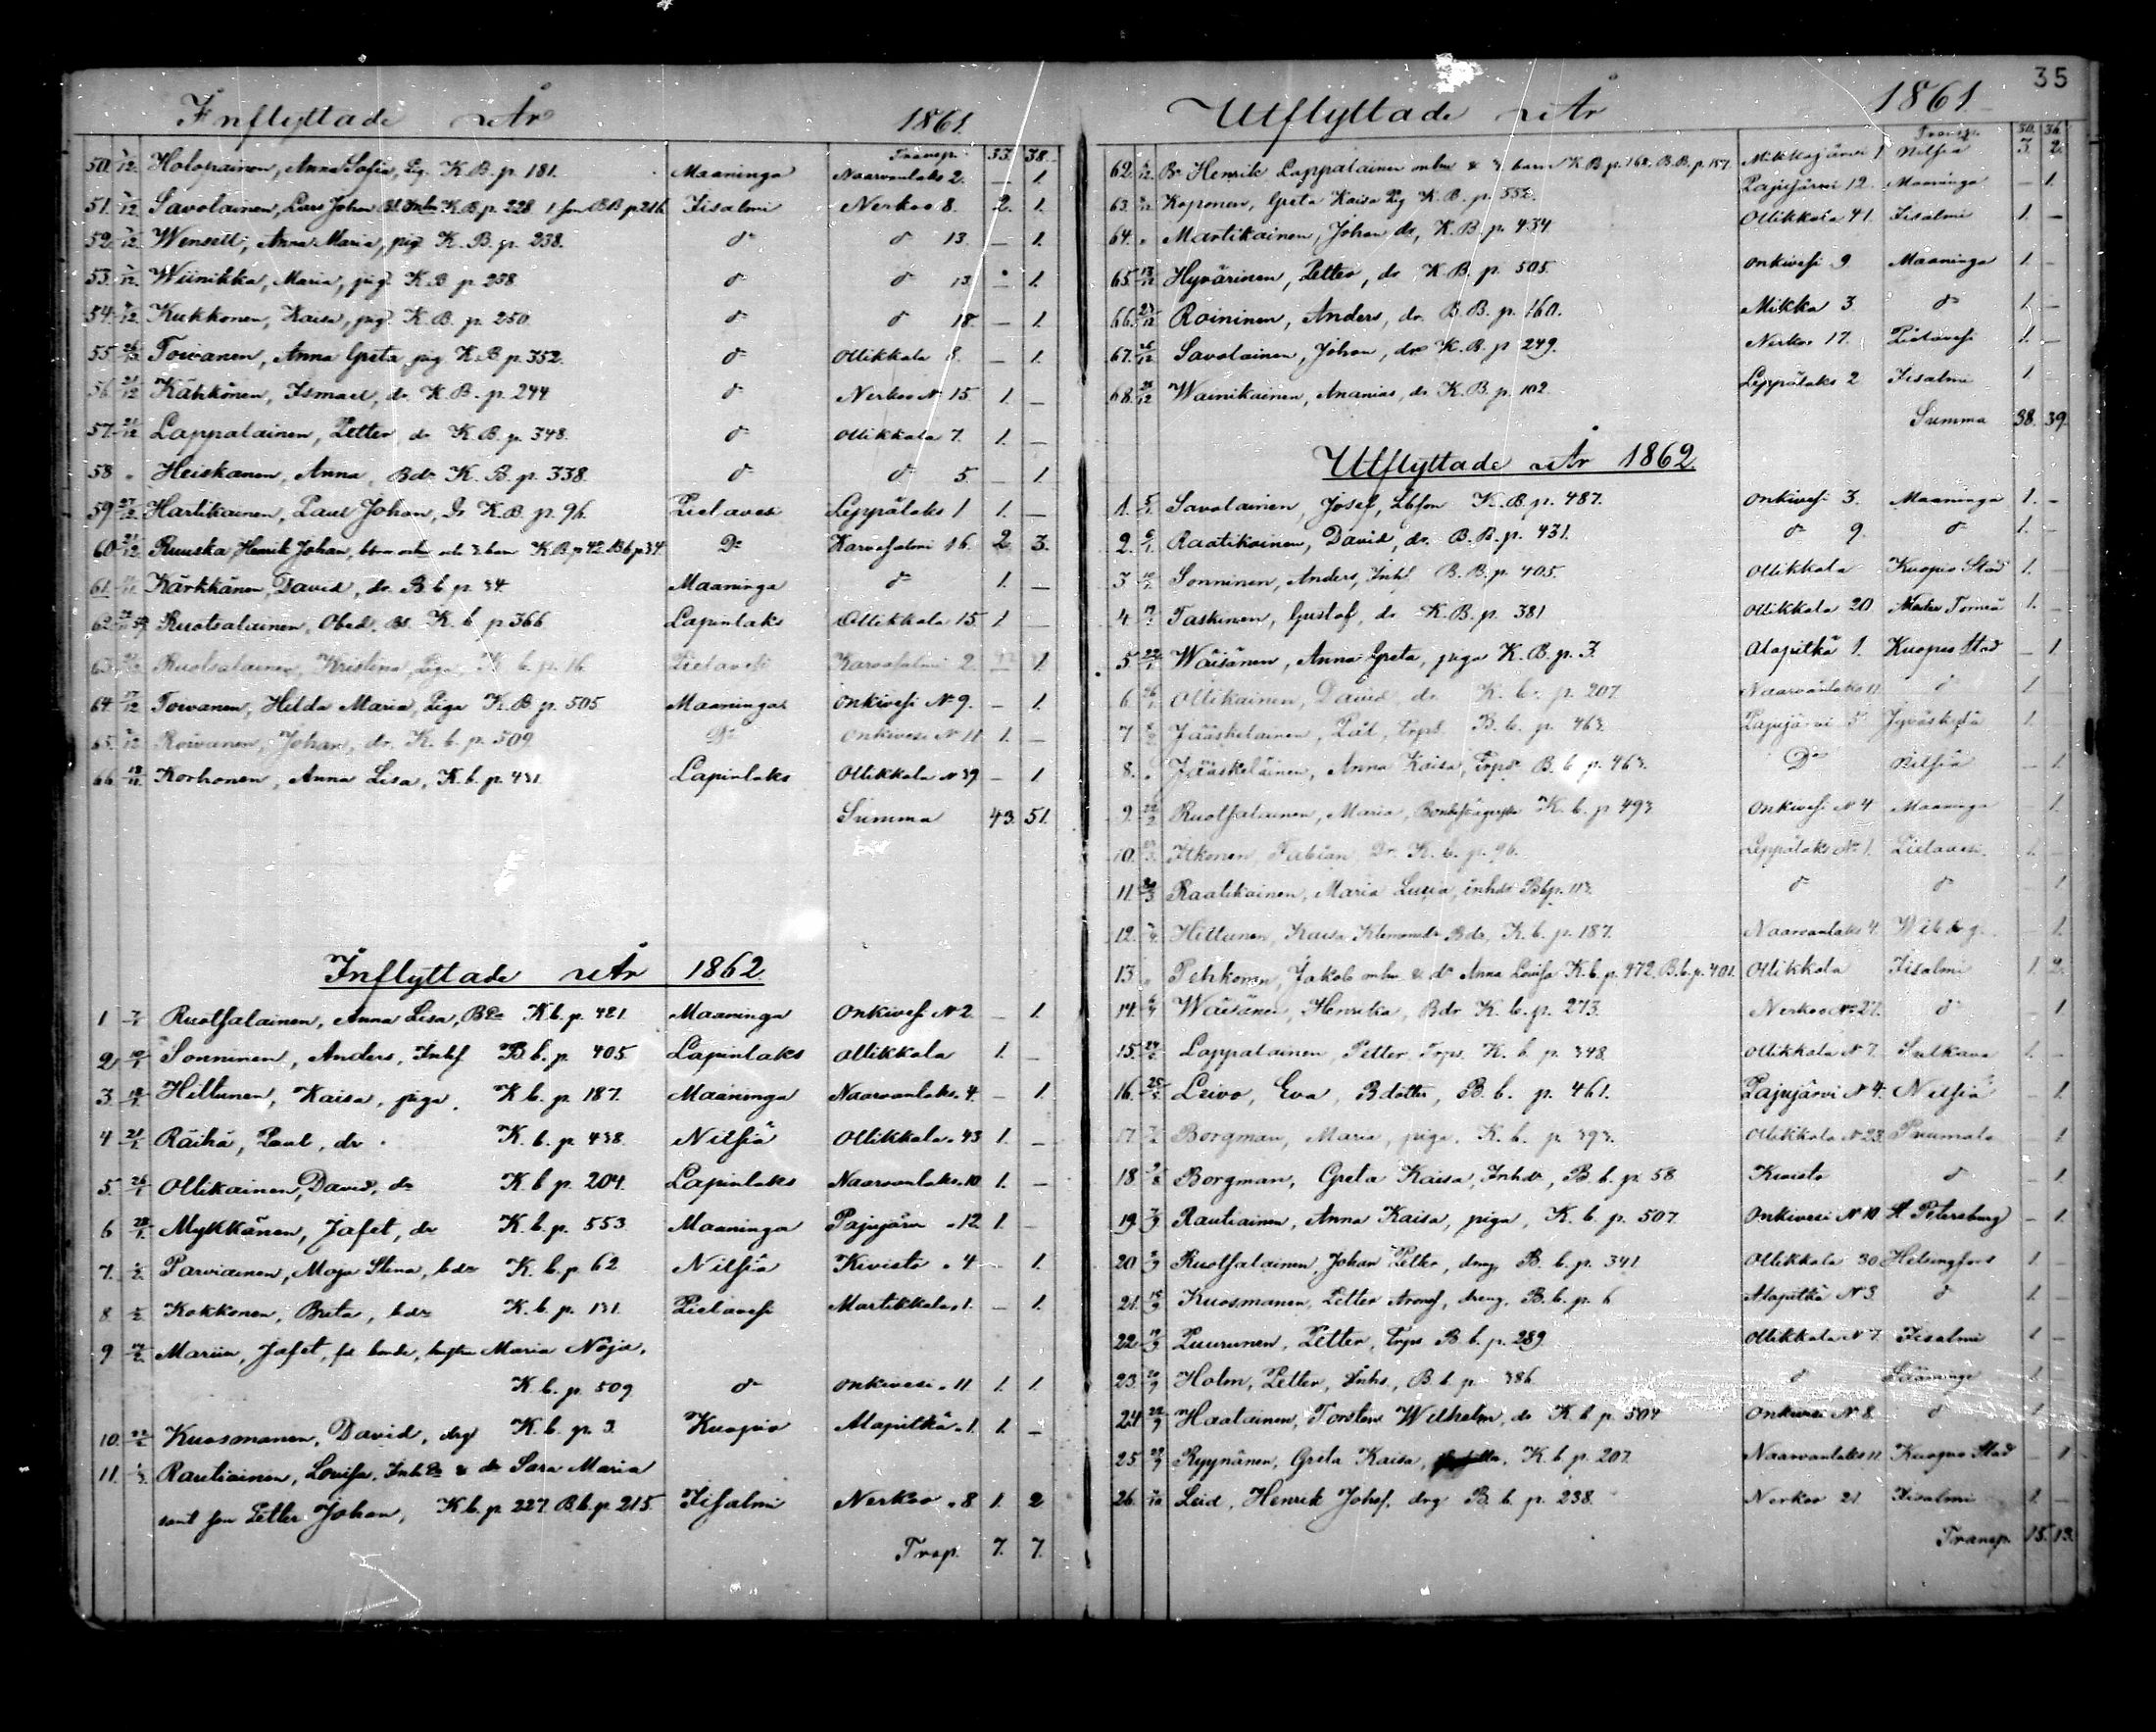 35
Inflyttade År 1861.
Transp. 33. 38.
50. /12 Holopainen, Anna Sofia, Pig. K.B. p. 181. Maaninga Naarvanlaks 2. — 1.
51. /12 Savolainen, Lars Johan K.B. p. 228. 1 son B.B. p. 216 Iisalmi Nerkoo 8. 2. 1.
52. /12 Wensell, Anna Maria, pig K.B. p. 238. do do 13. — 1.
53. /12 Wiinikka, Maria, pig K.B. p. 238. do do 13. — 1.
54. /12 Kukkonen, Kaisa, pig. K.B. p. 250. do do 18. — 1.
55. /12 Toivanen, Anna Greta, pig K.B. p. 352. do Ollikkala 8. — 1.
56. 21/12 Kähkönen, Ismael, dr. K.B. p. 244 do Nerkoo No 15. 1. —
57. 21/12 Lappalainen, Petter dr K.B. p. 348. do Ollikkala 7. 1. —
58 " Heiskanen, Anna, Bdr K.B. p. 338. do do 5. — 1
59 27/12 Hartikainen, Paul Johan, Dr K.B. p. 96. Pielavesi Leppälaks 1 1. —
60 21/12 Ruuska, Henrik Johan, K.B. p. 42. B.b. p. 34. Do Karvasalmi 16. 2 3.
61. Kärkkänen, David, dr. B.b. p. 34. Maaninga do 1. —
62. Ruotsalainen, Obed, K.b. p. 366 Lapinlaks Ollikkala 15. 1. —
63. Ruotsalainen, Kristina, Piga, K.b. p. 16. Pielavesi Karvasalmi 2. — 1.
64. 17/12 Toivanen, Hilda Maria, Piga K.B. p. 505 Maaninga Onkivesi No 9. — 1.
65. /12 Roivanen, Johan, dr. K.b. p. 509 Do Onkivesi No 11 1. —
66 Korhonen, Anna Lisa, K.b. p. 431. Lapinlaks Ollikkala No 39 — 1
Summa 43. 51.
Inflyttade År 1862.
1 7/1 Ruotsalainen, Anna Lisa, Bdr K.b. p. 481. Maaninga Onkivesi No 2. — 1.
2 10/1 Sonninen, Anders, Inhs B.b. p. 405. Lapinlaks Ollikkala 1. —
3. Hiltunen, Kaisa, piga, K.b. p. 187. Maaninga Naarvanlaks. 4. — 1.
4 21/1 Räihä, Paul, dr K.b. p. 438. Nilsiä Ollikkala " 43 1. —
5. 26/1 Ollikainen, David, dr K.b. p. 204. Lapinlaks Naarvanlaks " 10 1. —
6 28/1 Mykkänen, Jafet, dr K.b. p. 553. Maaninga Pajujärvi " 12 1. —
7. Parviainen, Maja Stina, bdr K.b. p. 62 Nilsiä Kivisto " 4 — 1.
8 Kokkonen, Brita, bdr K.b. p. 131. Pielavesi Martikkala " 1. — 1.
9 Jafet, fd bonde, hustru Maria Noja,
K.b. p. 509 do Onkivesi " 11. 1. 1.
10. Kuosmanen, David, drg K.b. p. 3. Kuopio Alapitkä " 1. 1. —
11. Rautiainen, Lovisa, Inhdr & dr Sara Maria
samt son Petter Johan, K.b. p. 227. B.b. p. 215. Iisalmi Nerkoo " 8 1. 2
Trsp. 7. 7.
Utflyttade År 1861
Transp. 30. 36.
62. /12 Bn Henrik Lappalainen mhu & 3 barn K.B. p. 162. B.B. p. 157. Mikkajärvi 1 Nilsiä 3. 2.
63. Koponen, Greta Kaisa Pig K.B. p. 552. Pajujärvi 12. Maaninga — 1.
64. " Martikainen, Johan dr, K.B. p. 434. Ollikkala 41. Iisalmi 1. —
65. 13/12 Hyvärinen, Petter, dr K.B. p. 505. Onkivesi 9 Maaninga 1. —
66. 23/12 Roininen, Anders, dr. B.B. p. 160. Mikka 3. do 1. —
67. /12 Savolainen, Johan, dr K.B. p 249. Nerkoo 17. Pielavesi 1. —
68. /12 Wainikainen, Ananias, dr K.B. p. 102. Leppälaks 2 Iisalmi 1. —
Summa 38. 39.
Utflyttade År 1862.
1. 5/1 Savolainen, Josef, Lbson K.B. p. 487. Onkivesi 3. Maaninga 1. —
2. 6/1 Raatikainen, David, dr. B.B. p. 431. do 9. do 1. —
3 10/1 Sonninen, Anders, Inhs B.B. p. 405. Ollikkala Kuopio Stad 1. —
4 Taskinen, Gustaf, dr K.B. p. 381 Ollikkala 20 Torneå 1. —
5 22/1 Wäisänen, Anna Greta, piga K.B. p. 3. Alapitkä 1. Kuopio Stad — 1
6. 26/1 Ollikainen, David, dr K.b. p. 207. Naarvanlaks 11 do 1 —
7 Jääskelainen, Pål, Trps. B.b. p. 463. Pajujärvi 5 Jyväskylä 1. —
8. " Jääskeläinen, Anna Kaisa, Trpdr B.b. p. 463. Do Nilsiä — 1
9. 22/2 Ruotsalainen, Maria, K.b. p. 493 Onkivesi No 4 Maaninga — 1.
10. Itkonen, Fabian, Dr. K.b. p. 96. Leppälaks No 1. Pielavesi. 1. —
11. Raatikainen, Maria Lucia, inhdr B.b. p. 113. do do — 1
12. Hiltunen, Kaisa Klemensdr Bdr, K.b. p. 187. Naarvanlaks 4. Wiborg. — 1.
13 " Pehkonen, Jakob mhu & dr Anna Lovisa K.b. p. 472. B.b. p. 401. Ollikkala Iisalmi 1. 2.
14. Wäisänen, Henrika, Bdr K.b. p. 273. Nerkoo No 27. do — 1
15. Lappalainen, Petter Trps. K.b. p. 348. Ollikkala No 7. Sulkava 1. —
16. 25/5 Leivo, Eva, Bdotter, B.b. p. 461. Pajujärvi No 4. Nilsiä — 1
17. Borgman, Maria, piga. K.b. p. 393. Ollikkala No 23. Puumala — 1
18 Borgman, Greta Kaisa, Inhdr, B.b. p. 58 Kivisto do — 1
19. Rautiainen, Anna Kaisa, piga, K.b. p. 507. Onkivesi No 10 St Petersburg — 1.
20 Ruotsalainen, Johan Petter, dreng B.b. p. 341 Ollikkala 30 Helsingfors 1. —
21. Kuosmanen, Petter Aronsf, dreng. B.b. p. 6 Alapitkä No 3. do 1. —
22. Puurunen, Petter, Trps B.b. p. 289 Ollikkala No 7. Iisalmi 1 —
23. Holm, Petter, Inhs, B.b. p 386 do Sääminge 1
24 Haatainen, Torsten Wilhelm, dr K.b. p. 504 Onkivesi No 8. do 1
25 Ryynänen, Greta Kaisa, K.b. p. 207. Naarvanlaks 11 Kuopio Stad — 1
26. Leid, Henrik Johsf. drg B.b. p. 238. Nerkoo 21 Iisalmi 1. —
Transp. 15. 13.